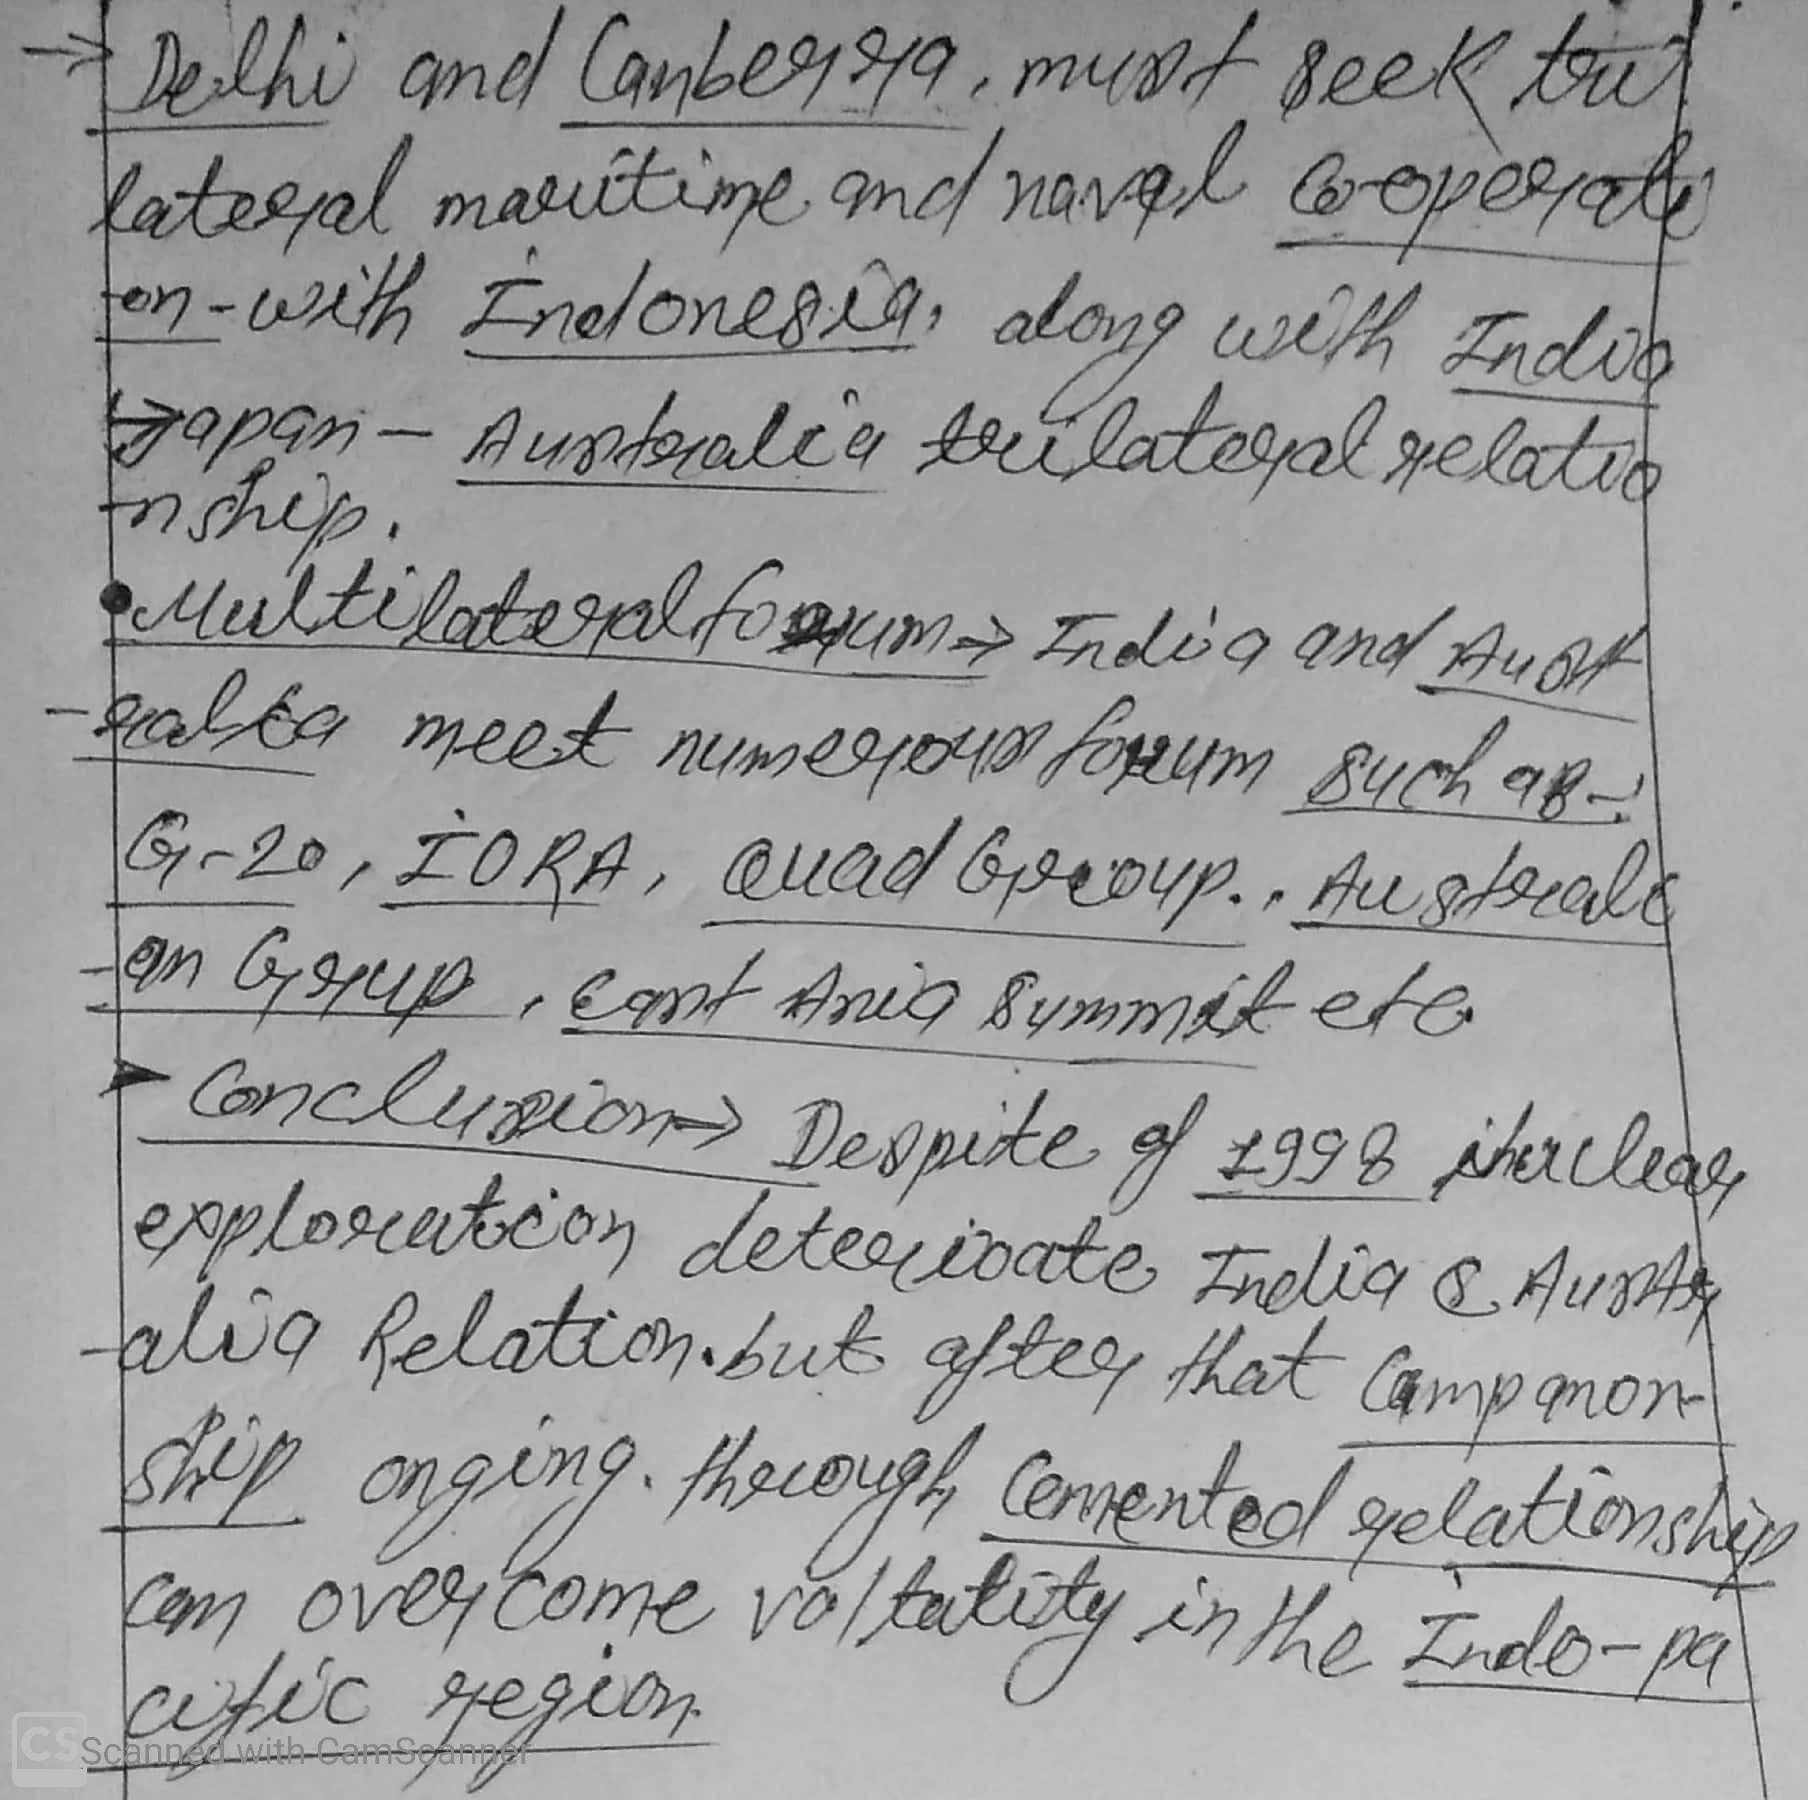 → Delhi and Canberra, must seek tri
lateral maritime and naval Co-operati
-on-with Indonesia, along with India
→Japan - Australia trilateral relatio
-nship.
• Multilateral forum → India and Aust
-ralia meet numerous forum such as-:
G-20, IORA, Quad Group., Australi
-an Grup, East Asia Summit etc.
Conclusion → Despite of 1998 nuclear
exploration deterioate India & Austr
-alia Relation. but after that Campanon-
ship onging. through Cemented relationship
can overcome voltality in the Indo-pa
cific region.
CS Scanned with CamScanner